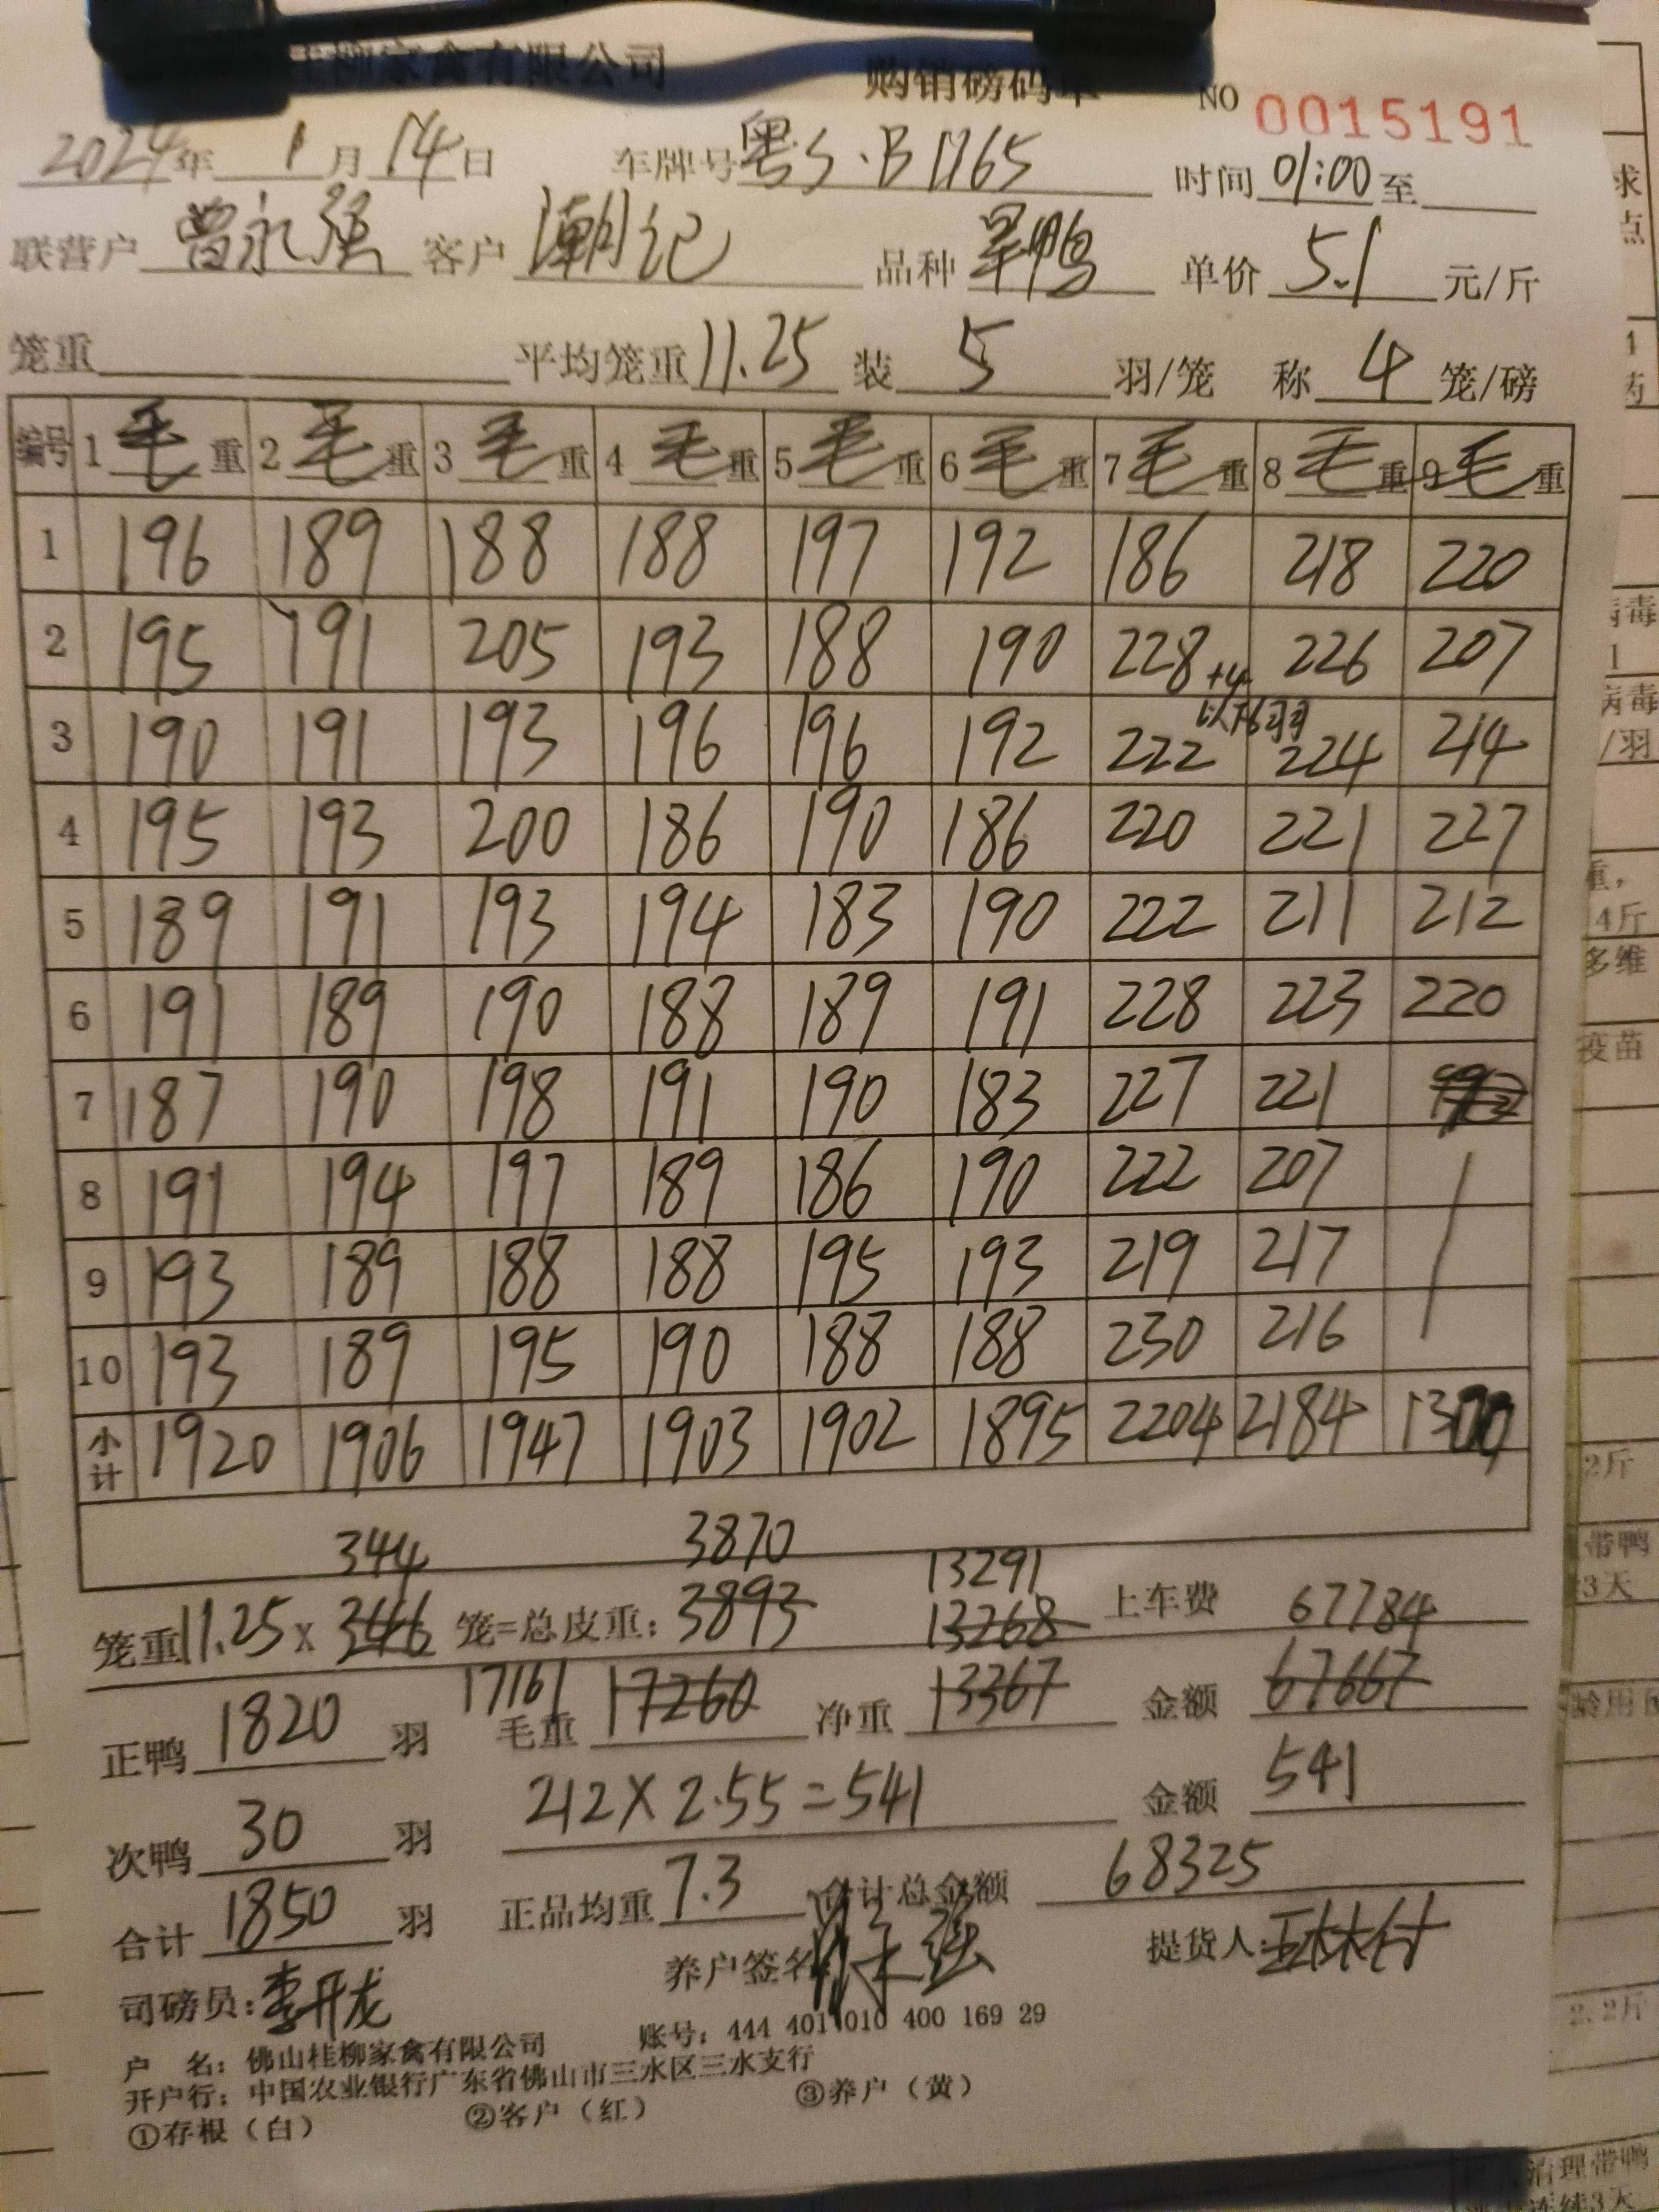 柳家禽有限公司 购销磅码单 NO 0015191
2024年 1月 14日 车牌号 粤S·B1165 时间 01:00 至
联营户 曾永强 客户 潮记 品种 旱鸭 单价 5.1 元/斤
笼重 平均笼重 11.25 装 5 羽/笼 称 4 笼/磅
编号 1 毛重 2 毛重 3 毛重 4 毛重 5 毛重 6 毛重 7 毛重 8 毛重 9 毛重
1 196 189 188 188 197 192 186 218 220
2 195 191 205 193 188 190 228 +4 226 207
以下6羽
3 190 191 193 196 196 192 222 224 214
4 195 193 200 186 190 186 220 221 227
5 189 191 193 194 183 190 222 211 212
6 191 189 190 188 189 191 228 223 220
7 187 190 198 191 190 183 227 221
8 191 194 197 189 186 190 222 207
9 193 189 188 188 195 193 219 217
10 193 189 195 190 188 188 230 216
小计 1920 1906 1947 1903 1902 1895 2204 2184 1300
344 3870 13291
笼重11.25 x 346 笼=总皮重: 3893 13268 上车费 67784
正鸭 1820 羽 17161 毛重 17260 净重 13367 金额 67667
次鸭 30 羽 212 X 2.55 = 541 金额 541
合计 1850 羽 正品均重 7.3 合计总金额 68325
司磅员: 李开龙 养户签名 提货人:
户 名: 佛山桂柳家禽有限公司 账号: 444 401 010 400 169 29
开户行: 中国农业银行广东省佛山市三水区三水支行
①存根（白） ②客户（红） ③养户（黄）
求
点
病毒
1
病毒
/羽
重,
4斤
多维
疫苗
2斤
带鸭
3天
龄用
2.2斤
治理带鸭
连续3天